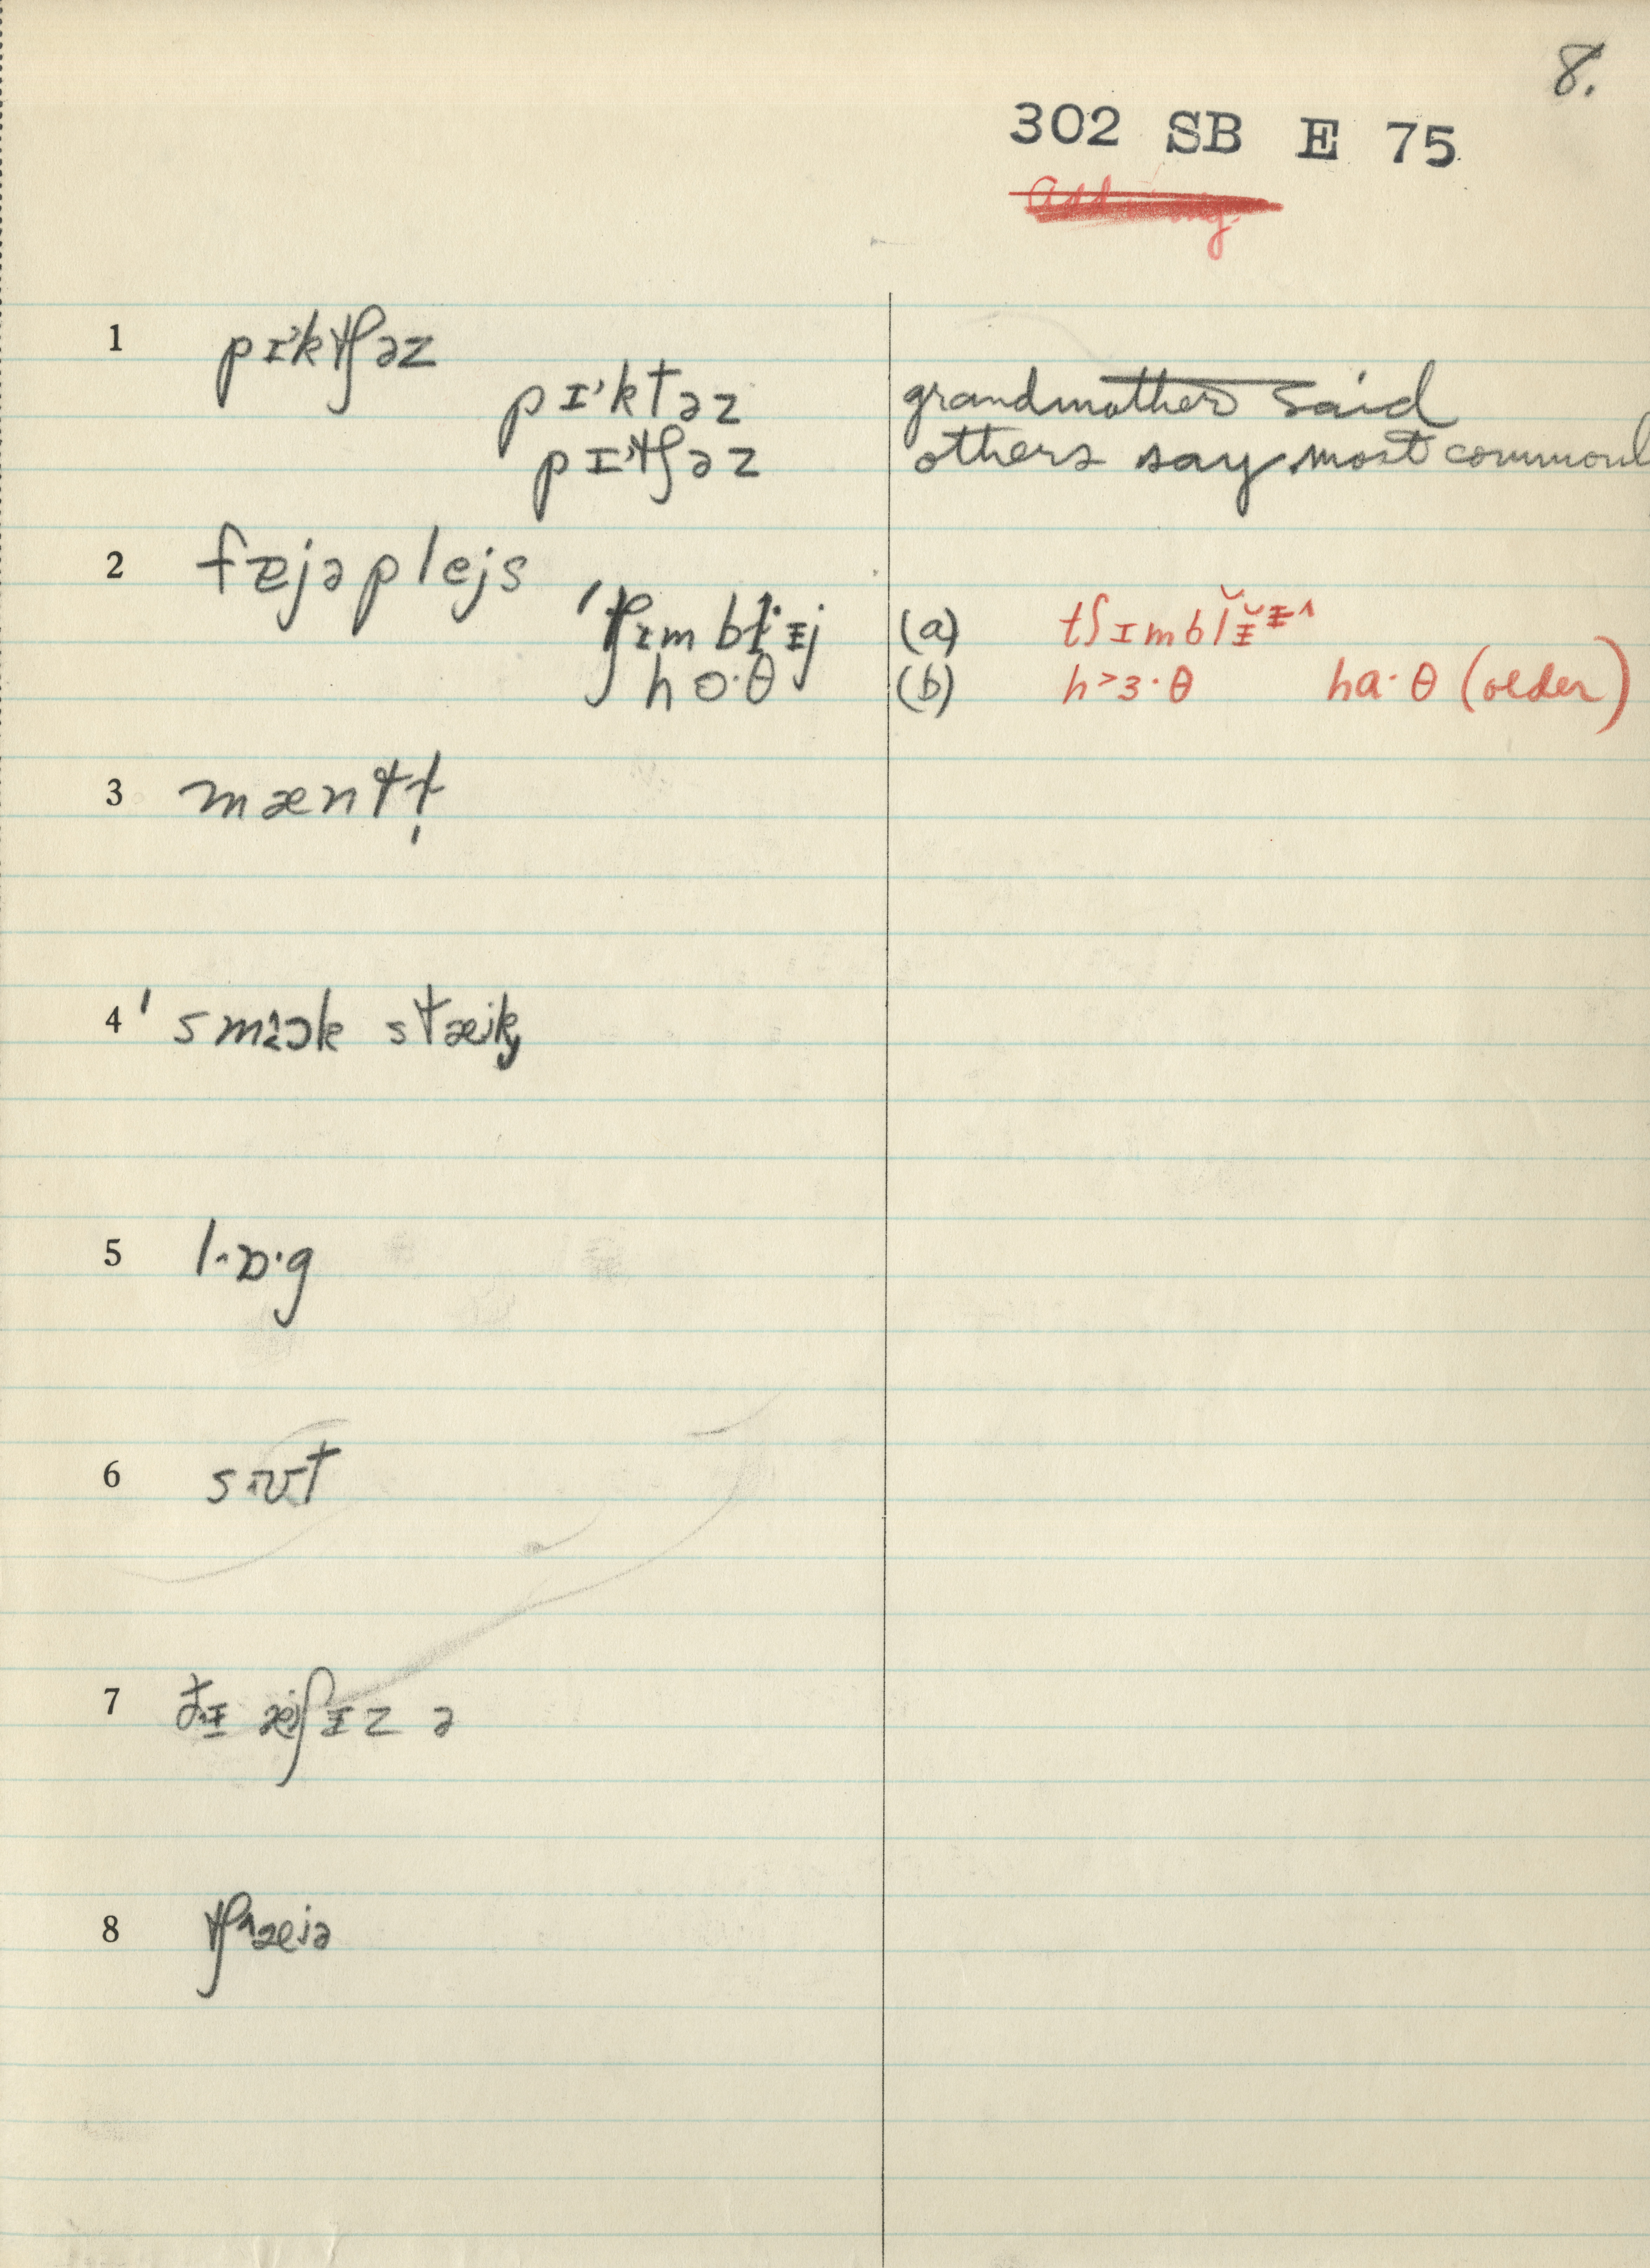 8.
302 SB E 75
1 pɪ'ktʃəz
pɪ'ktəz grandmother said
pɪ'tʃəz others say most commonl
2 fæjəplejs
'tʃɪm blɪj (a) tʃɪmblɪ̆ɪ^
ho·θ (b) h>ɜ·θ ha·θ (older)
3 mæntɫ̩
4 'smɔk stæik
5 l·ɒ·g
6 sʌt
7 ðɪ æʃɪz ə
8 tʃæejə